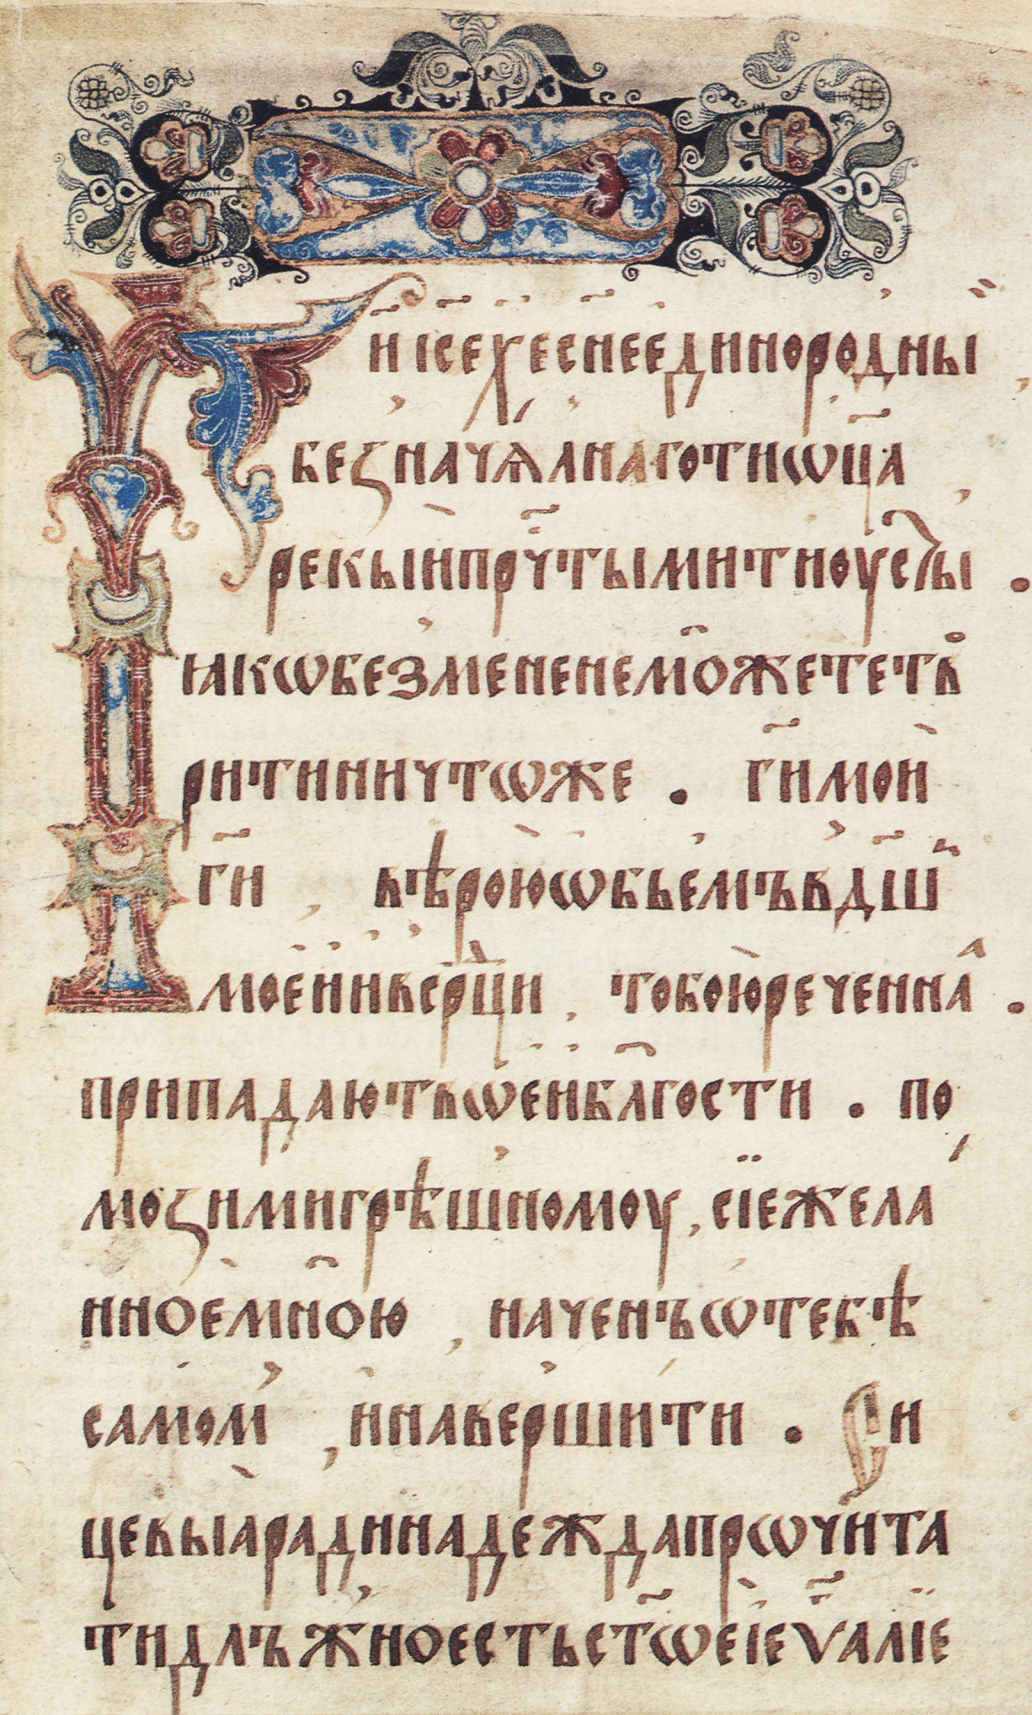 Ги҃ ісе хе сн҃е единородны
беꙁначѧлнаго ти ѡц҃а
рекыи прч҃тыми ти оусты •
ꙗкѡ без мене не можете тв
рити ничтѡже • ги҃ мои
ги҃ , вѣрою ѡбьемъ в дш҃и
моеи и в срц҃и , тобою реченна •
припадаю твоеи бл҃гости • по
моꙁи ми грѣшномоу , сїе жела
нное мною , начен ѡ тебѣ
самом , и навершити • Си
цевыа ради надежда прѡчита
ти длъжно есть ст҃ѡе іеѵа҃лїе